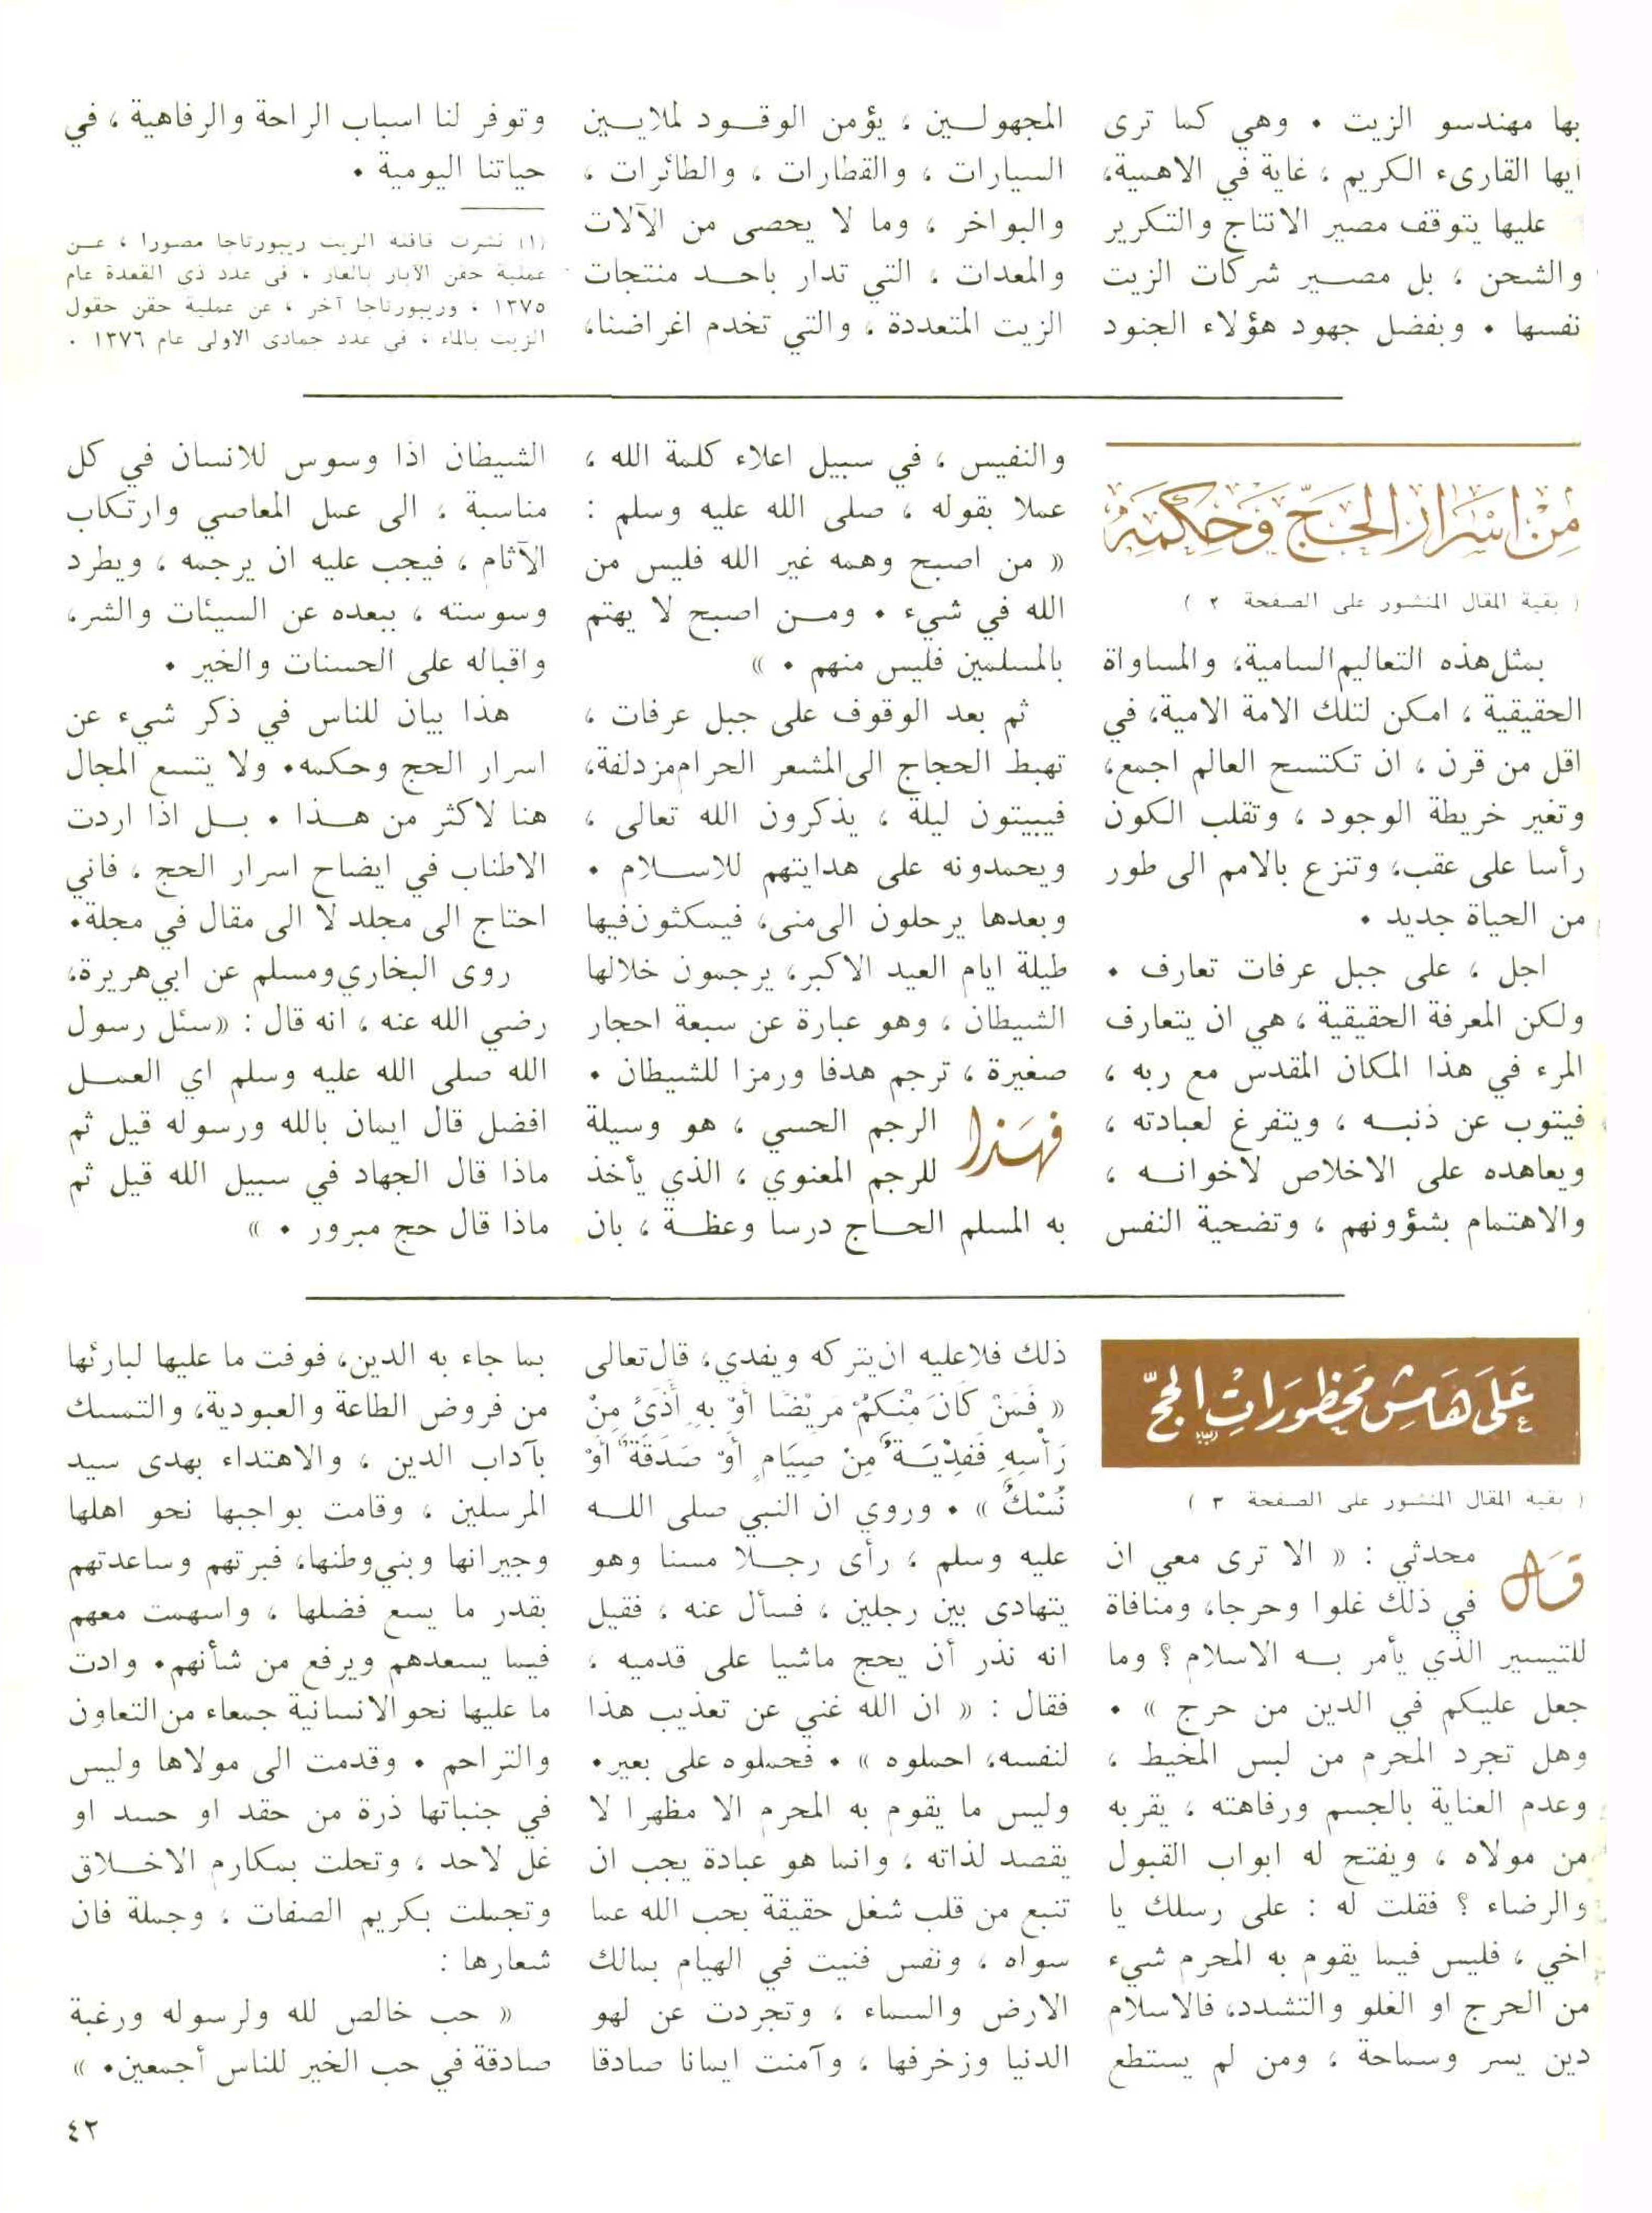 بها مهندسو الزيت . وهي كما ترى
ايها القارىء الكريم ، غاية في الاهمية،
عليها يتوقف مصير الانتاج والتكرير
والشحن ، بل مصير شركات الزيت
نفسها . وبفضل جهود هؤلاء الجنود
المجهولين ، يؤمن الوقود لملايين
السيارات ، والقطارات ، والطائرات ،
والبواخر ، وما لا يحصى من الآلات
والمعدات ، التي تدار باحد منتجات
الزيت المتعددة ، والتي تخدم اغراضنا،
وتوفر لنا اسباب الراحة والرفاهية ، في
حياتنا اليومية .
(١) نشرت قافلة الزيت ريبورتاجا مصورا ، عن
عملية حقن الآبار بالغاز ، في عدد ذي القعدة عام
١٣٧٥ ، وريبورتاجا آخر ، عن عملية حقن حقول
الزيت بالماء ، في عدد جمادى الاولى عام ١٣٧٦ .
مِنْ اسْرَار الحَجّ وَحكمِهْ
( بقية المقال المنشور على الصفحة ٢ )
بمثل هذه التعاليم السامية، والمساواة
الحقيقية ، امكن لتلك الامة الامية، في
اقل من قرن ، ان تكتسح العالم اجمع،
وتغير خريطة الوجود ، وتقلب الكون
رأسا على عقب، وتنزع بالامم الى طور
من الحياة جديد .
اجل ، على جبل عرفات تعارف .
ولكن المعرفة الحقيقية ، هي ان يتعارف
المرء في هذا المكان المقدس مع ربه ،
فيتوب عن ذنبه ، ويتفرغ لعبادته ،
ويعاهده على الاخلاص لاخوانه ،
والاهتمام بشؤونهم ، وتضحية النفس
والنفيس ، في سبيل اعلاء كلمة الله ،
عملا بقوله ، صلى الله عليه وسلم :
« من اصبح وهمه غير الله فليس من
الله في شيء . ومن اصبح لا يهتم
بالمسلمين فليس منهم . »
ثم بعد الوقوف على جبل عرفات ،
تهبط الحجاج الى المشعر الحرام مزدلفة،
فيبيتون ليلة ، يذكرون الله تعالى ،
ويحمدونه على هدايتهم للاسلام .
وبعدها يرحلون الى منى، فيمكثون فيها
طيلة ايام العيد الاكبر، يرجمون خلالها
الشيطان ، وهو عبارة عن سبعة احجار
صغيرة ، ترجم هدفا ورمزا للشيطان .
فهَذا الرجم الحسي ، هو وسيلة
للرجم المعنوي ، الذي يأخذ
به المسلم الحاج درسا وعظة ، بان
الشيطان اذا وسوس للانسان في كل
مناسبة ، الى عمل المعاصي وارتكاب
الآثام ، فيجب عليه ان يرجمه ، ويطرد
وسوسته ، ببعده عن السيئات والشر،
واقباله على الحسنات والخير .
هذا بيان للناس في ذكر شيء عن
اسرار الحج وحكمه. ولا يتسع المجال
هنا لاكثر من هذا . بل اذا اردت
الاطناب في ايضاح اسرار الحج ، فاني
احتاج الى مجلد لا الى مقال في مجلة.
روى البخاري ومسلم عن ابي هريرة،
رضي الله عنه ، انه قال : «سئل رسول
الله صلى الله عليه وسلم اي العمل
افضل قال ايمان بالله ورسوله قيل ثم
ماذا قال الجهاد في سبيل الله قيل ثم
ماذا قال حج مبرور . »
عَلى هَامش مَحظورَاتْ الحجّ
( بقية المقال المنشور على الصفحة ٣ )
قال محدثي : « الا ترى معي ان
في ذلك غلوا وحرجا، ومنافاة
للتيسير الذي يأمر به الاسلام ؟ وما
جعل عليكم في الدين من حرج » .
وهل تجرد المحرم من لبس المخيط ،
وعدم العناية بالجسم ورفاهته ، يقربه
من مولاه ، ويفتح له ابواب القبول
والرضاء ؟ فقلت له : على رسلك يا
اخي ، فليس فيما يقوم به المحرم شيء
من الحرج او الغلو والتشدد، فالاسلام
دين يسر وسماحة ، ومن لم يستطع
ذلك فلا عليه ان يتركه ويفدي، قال تعالى
« فَمَنْ كَانَ مِنْكُمْ مَرِيْضًا أَوْ بِهِ أَذَىً مِنْ
رَأْسِهِ فَفِدْيَةٌ مِنْ صِيَامٍ أَوْ صَدَقَةٌ أَوْ
نُسُكٌ » . وروي ان النبي صلى الله
عليه وسلم ، رأى رجلا مسنا وهو
يتهادى بين رجلين ، فسأل عنه ، فقيل
انه نذر أن يحج ماشيا على قدميه ،
فقال : « ان الله غني عن تعذيب هذا
لنفسه، احملوه » . فحملوه على بعير.
وليس ما يقوم به المحرم الا مظهرا لا
يقصد لذاته ، وانما هو عبادة يجب ان
تنبع من قلب شغل حقيقة بحب الله عما
سواه ، ونفس فنيت في الهيام بمالك
الارض والسماء ، وتجردت عن لهو
الدنيا وزخرفها ، وآمنت ايمانا صادقا
بما جاء به الدين، فوفت ما عليها لبارئها
من فروض الطاعة والعبودية، والتمسك
بآداب الدين ، والاهتداء بهدى سيد
المرسلين ، وقامت بواجبها نحو اهلها
وجيرانها وبني وطنها، فبرتهم وساعدتهم
بقدر ما يسع فضلها ، واسهمت معهم
فيما يسعدهم ويرفع من شأنهم. وادت
ما عليها نحو الانسانية جمعاء من التعاون
والتراحم . وقدمت الى مولاها وليس
في جنباتها ذرة من حقد او حسد او
غل لاحد ، وتحلت بمكارم الاخلاق
وتجملت بكريم الصفات ، وجملة فان
شعارها :
« حب خالص لله ولرسوله ورغبة
صادقة في حب الخير للناس أجمعين. »
٤٢